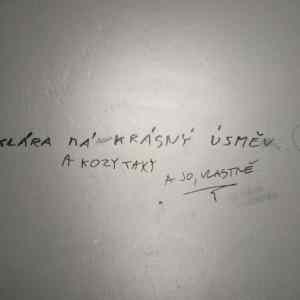 KLÁRA MÁ KRÁSNÝ ÚSMĚV
A KOZY TAKY
A JO, VLASTNĚ